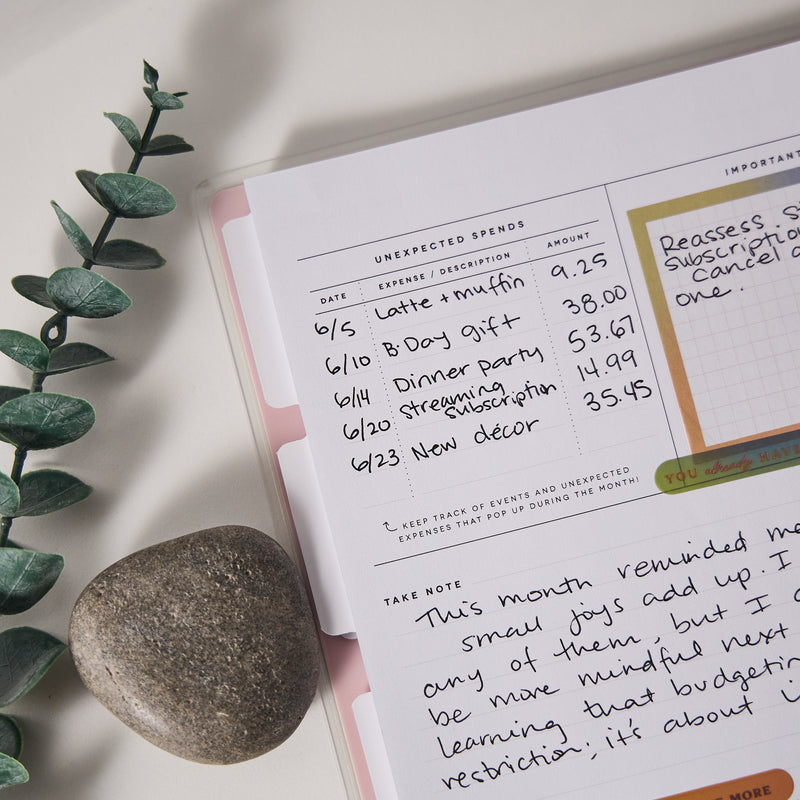 UNEXPECTED SPENDS
DATE EXPENSE / DESCRIPTION AMOUNT
6/5 Latte + muffin 9.25
6/10 B-Day gift 38.00
6/14 Dinner party 53.67
6/20 Streaming subscription 14.99
6/23 New décor 35.45
KEEP TRACK OF EVENTS AND UNEXPECTED
EXPENSES THAT POP UP DURING THE MONTH!
IMPORTANT
Reassess
subscription
Cancel
one.
YOU already HAVE
TAKE NOTE
This month reminded me
small joys add up. I
any of them, but I
be more mindful next
learning that budgeting
restriction; it's about
MORE